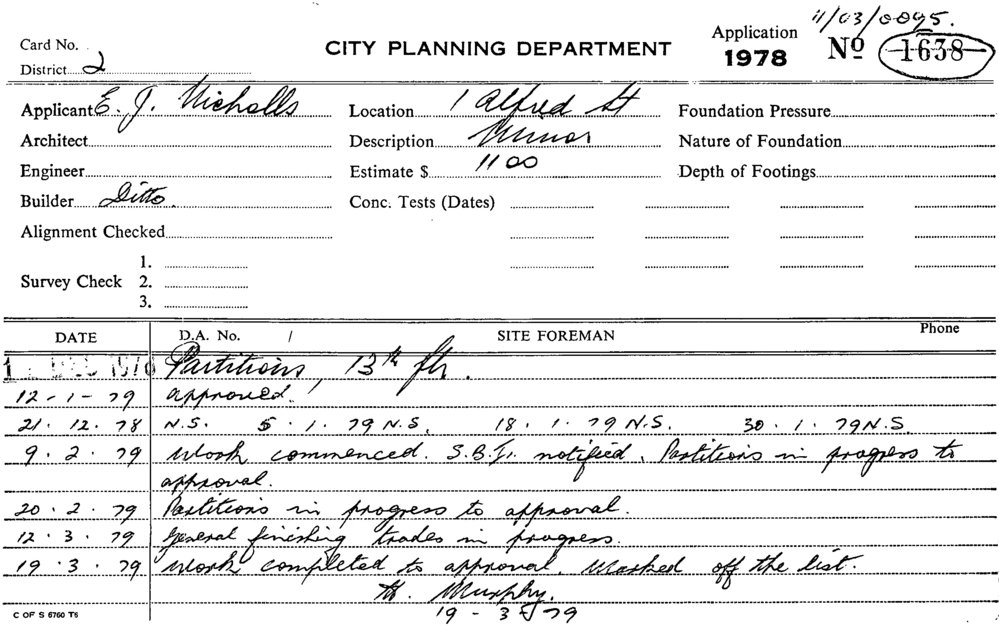 11/03/0095.
Card No.
CITY PLANNING DEPARTMENT
Application
1978
No 1638
District 2
Applicant E. J. Nicholls
Location 1 Alfred St
Foundation Pressure
Architect
Description Minor
Nature of Foundation
Engineer
Estimate $ 1100
Depth of Footings
Builder Ditto.
Conc. Tests (Dates)
Alignment Checked
Survey Check
1.
2.
3.
DATE D.A. No. / SITE FOREMAN Phone
DEC 1978 Partitions, 13th flr.
12-1-79 approved.
21.12.78 N.S. 5.1.79 N.S. 18.1.79 N.S. 30.1.79 N.S.
9.2.79 Work commenced. S.B.I. notified. Partitions in progress to
approval.
20.2.79 Partitions in progress to approval.
12.3.79 General finishing trades in progress.
19.3.79 Work completed to approval. Marked off the list.
Murphy.
19-3-79
C OF S 6760 T6